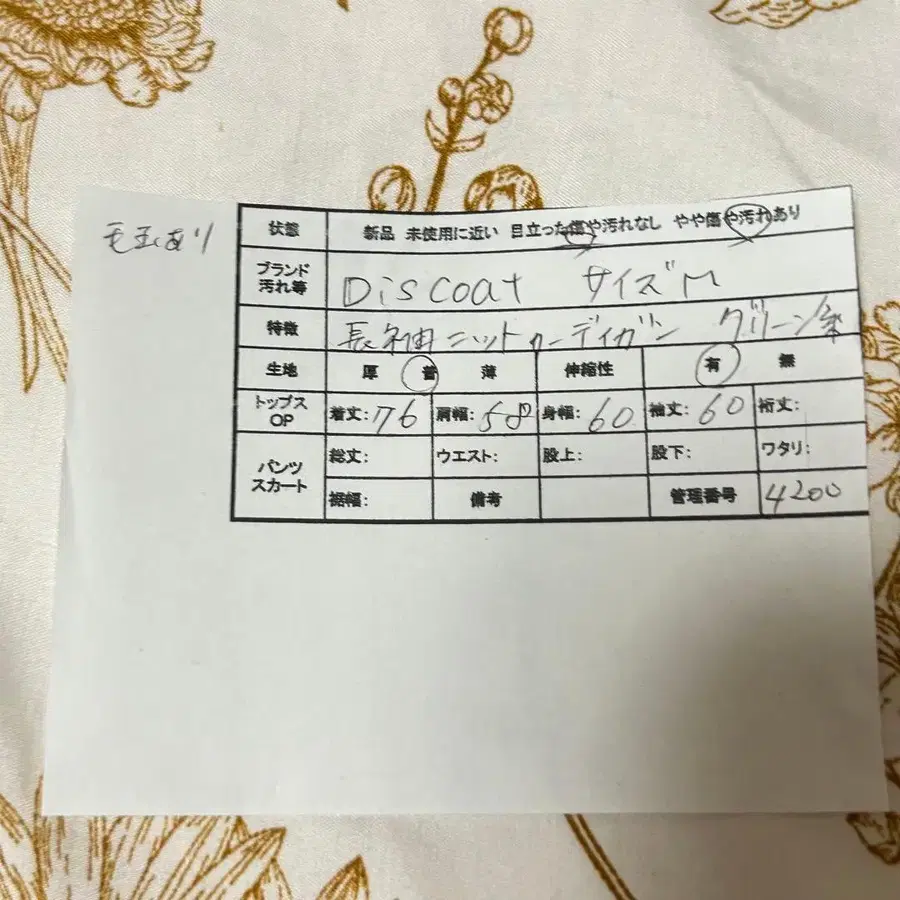 毛玉あり
状態 新品 未使用に近い 目立った傷や汚れなし やや傷や汚れあり
ブランド 汚れ等 Discoat サイズM
特徴 長袖ニットカーディガン グリーン系
生地 厚 普 薄 伸縮性 有 無
トップス OP 着丈:76 肩幅:58 身幅:60 袖丈:60 裄丈:
パンツ スカート 総丈: ウエスト: 股上: 股下: ワタリ:
裾幅: 備考 管理番号 4200